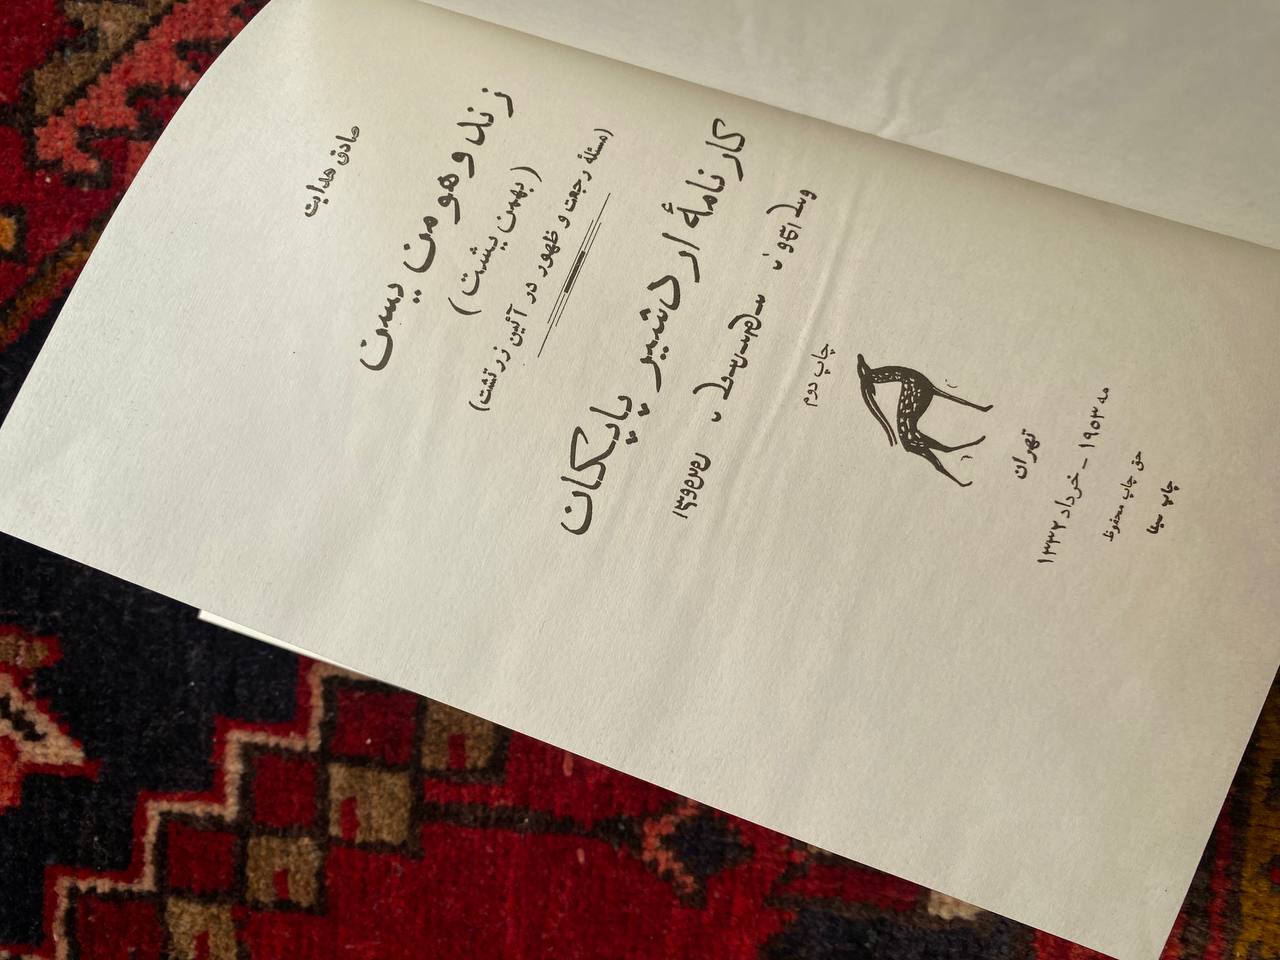 صادق هدایت
زند و هومن یسن
(بهمن یشت)
(مسئلهٔ رجعت و ظهور در آئین زرتشت)
کارنامهٔ اردشیر پاپکان
چاپ دوم
تهران
مه ۱۹۵۳ - خرداد ۱۳۳۲
حق چاپ محفوظ
چاپ سینا